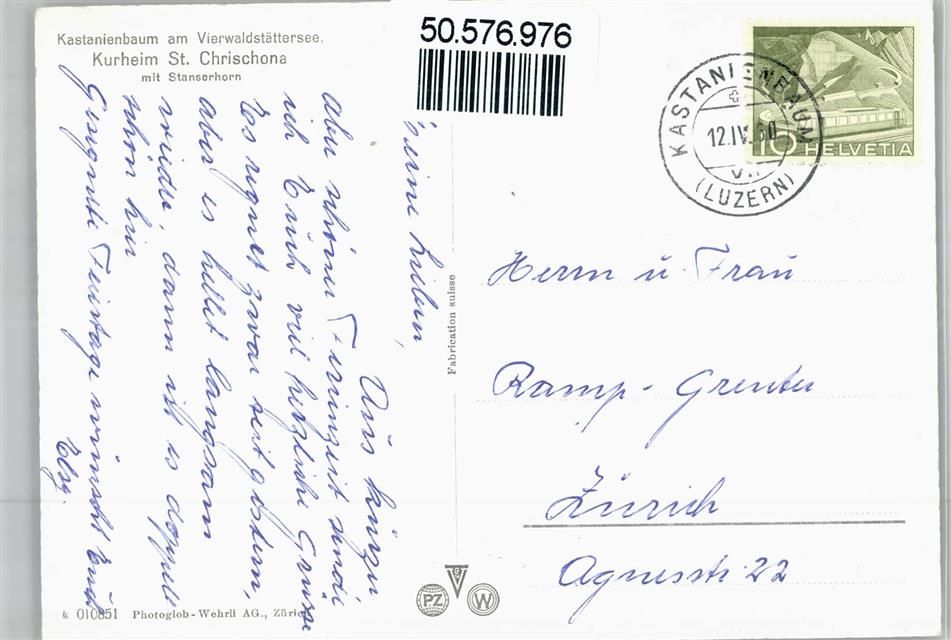 Kastanienbaum am Vierwaldstättersee.
Kurheim St. Chrischona
mit Stanserhorn
50.576.976
KASTANIENBAUM
12.IV.60
(LUZERN)
10 HELVETIA
Meine Lieben,
Aus kurzer
aber schöner Ferienzeit sende
ich Euch viel herzliche Grüsse
Es regnet zwar seit gestern,
aber es hellet langsam
wieder, dann ist es doppelt
schön hier
Gesegnete Feiertage wünscht Euch
Elsy.
Fabrication suisse
Herrn u. Frau
Ramp-Greuter
Zürich
Agnesstr. 22
k 010851 Photoglob-Wehrli AG., Zürich
PZ
G
W